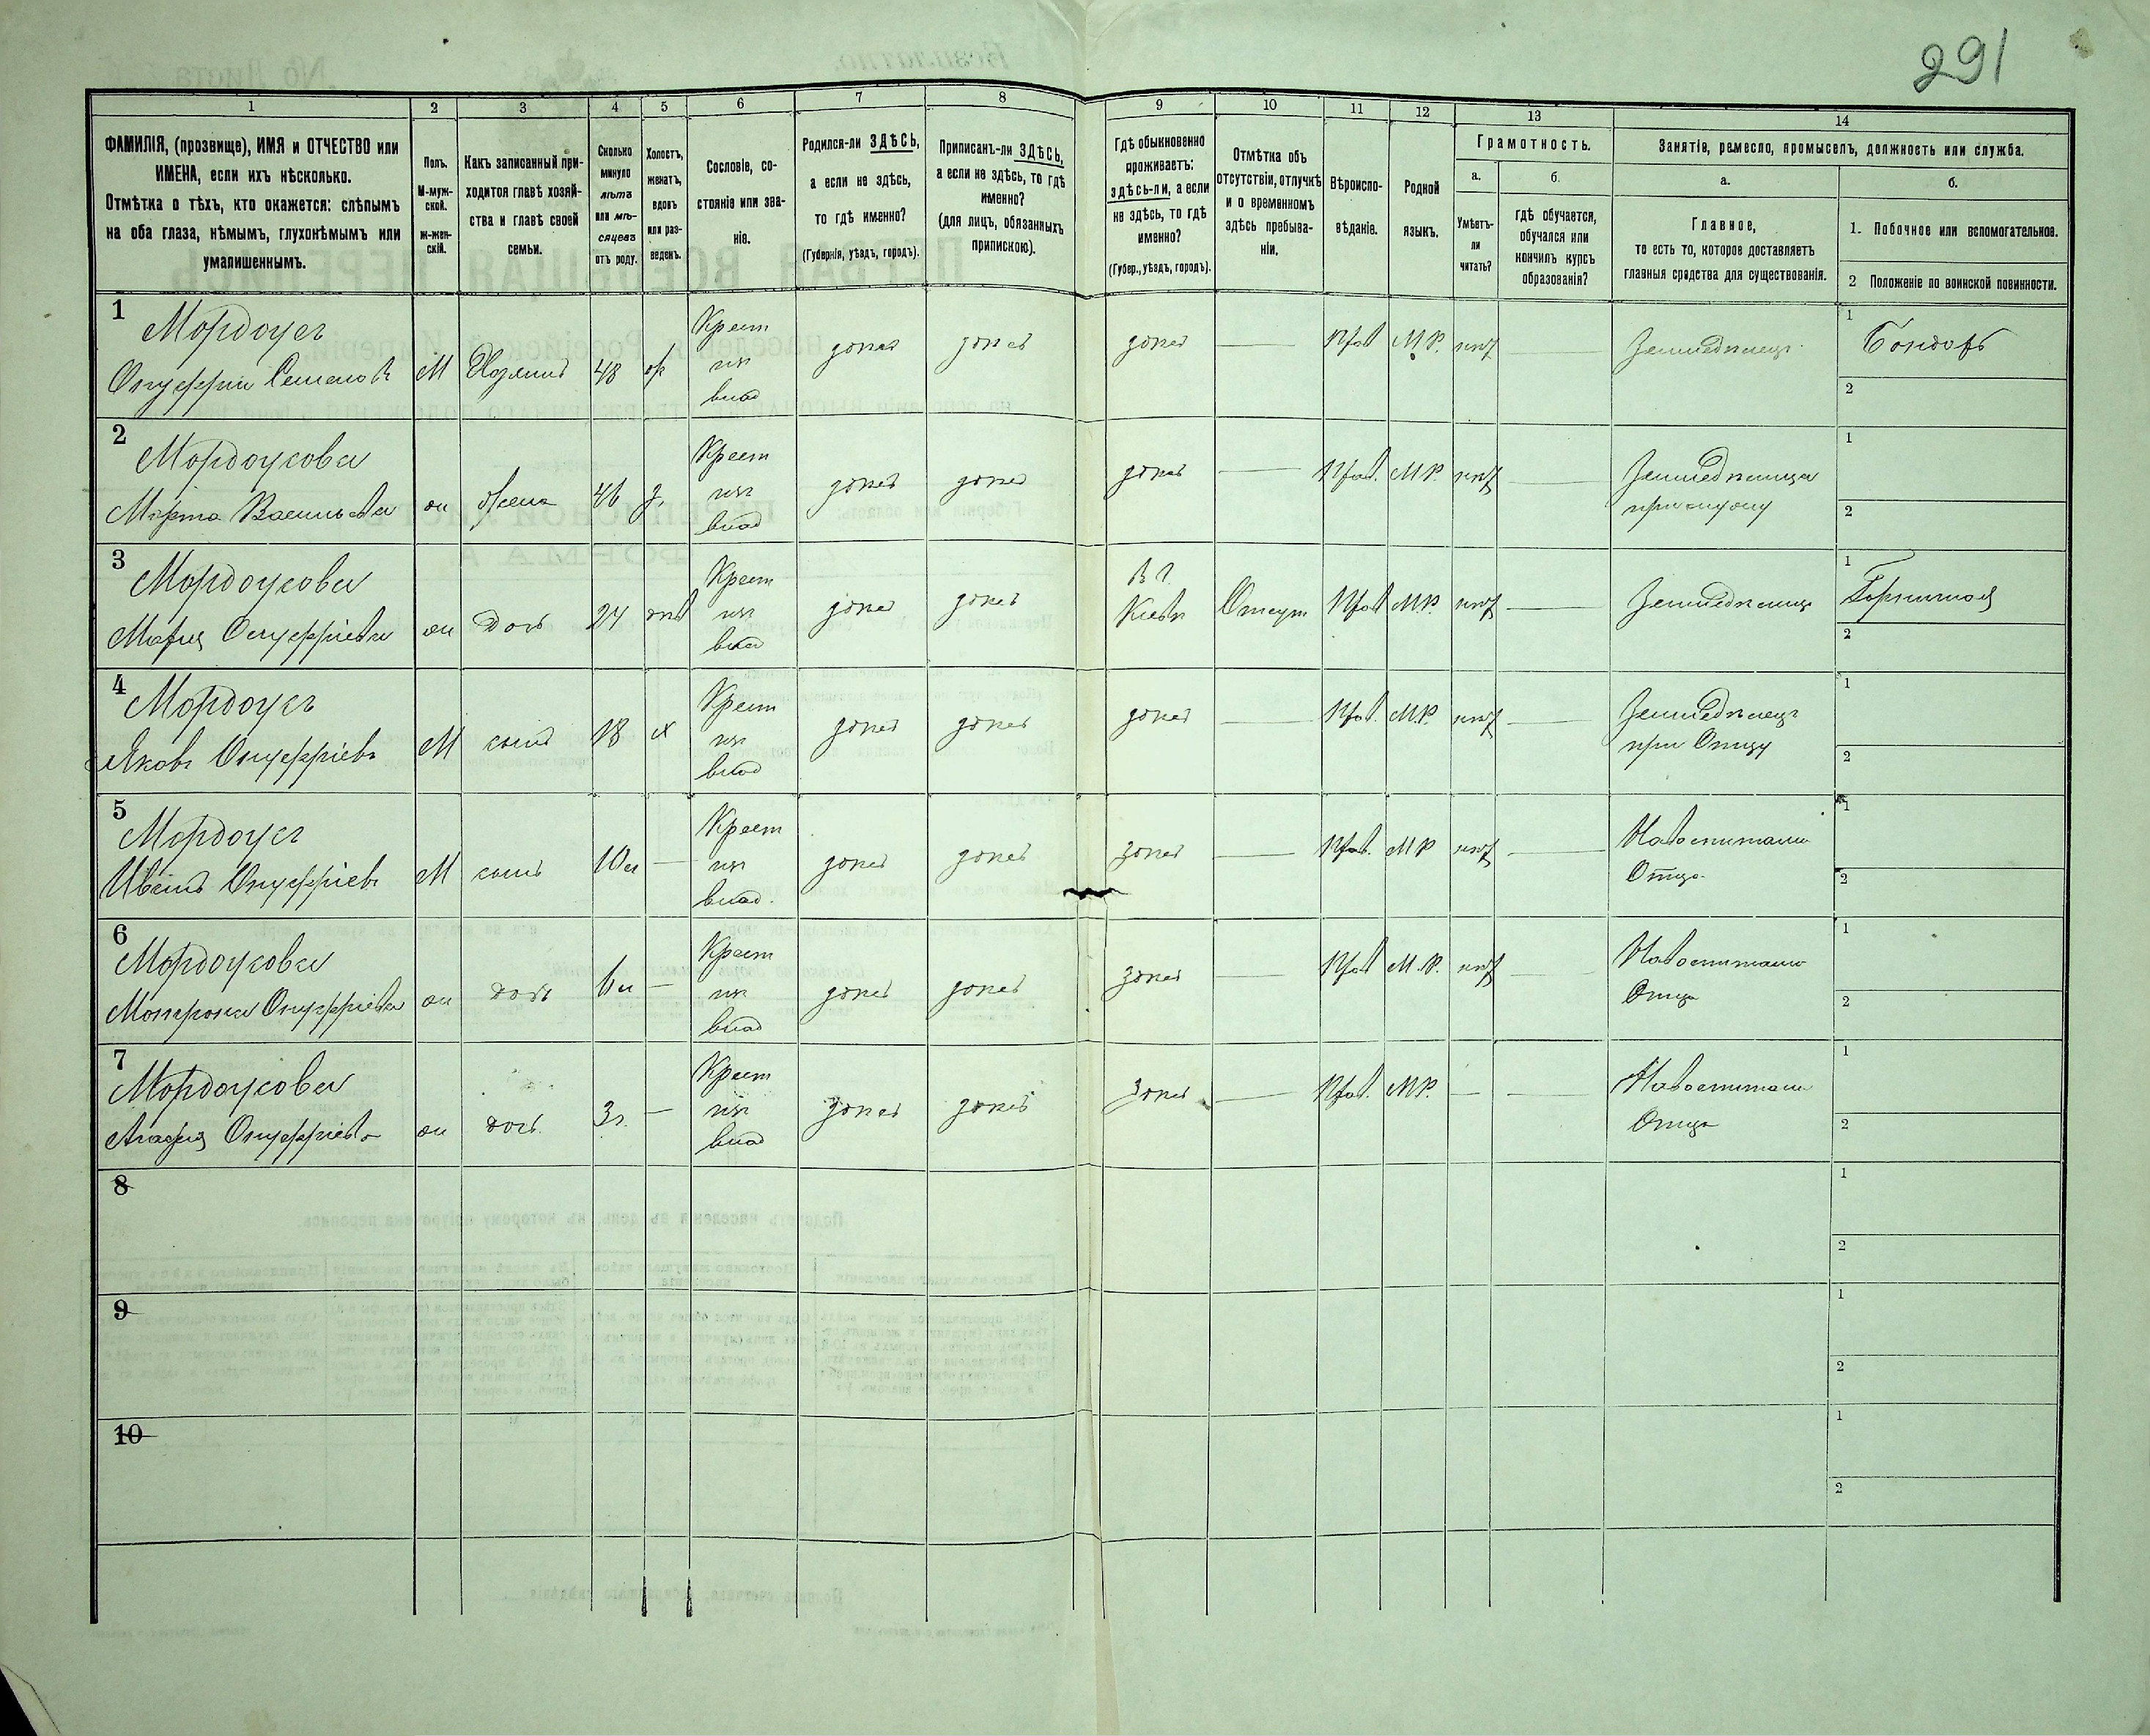 291
1 2 3 4 5 6 7 8 9 10 11 12 13 14
ФАМИЛІЯ, (прозвище), ИМЯ и ОТЧЕСТВО или
ИМЕНА, если ихъ нѣсколько.
Отмѣтка о тѣхъ, кто окажется: слѣпымъ
на оба глаза, нѣмымъ, глухонѣмымъ или
умалишеннымъ.
Полъ.
М-муж-
ской.
ж-жен-
скій.
Какъ записанный при-
ходится главѣ хозяй-
ства и главѣ своей
семьи.
Сколько
минуло
лѣтъ
или мѣ-
сяцевъ
отъ роду.
Холостъ,
женатъ,
вдовъ
или раз-
веденъ.
Сословіе, со-
стояніе или зва-
ніе.
Родился-ли ЗДѢСЬ,
а если не здѣсь,
то гдѣ именно?
(Губернія, уѣздъ, городъ).
Приписанъ-ли ЗДѢСЬ,
а если не здѣсь, то гдѣ
именно?
(для лицъ, обязанныхъ
припискою).
Гдѣ обыкновенно
проживаетъ:
здѣсь-ли, а если
не здѣсь, то гдѣ
именно?
(Губер., уѣздъ, городъ).
Отмѣтка объ
отсутствіи, отлучкѣ
и о временномъ
здѣсь пребыва-
ніи.
Вѣроиспо-
вѣданіе.
Родной
языкъ.
Грамотность.
а.
Умѣетъ-
ли
читать?
б.
гдѣ обучается,
обучался или
кончилъ курсъ
образованія?
Занятіе, ремесло, промыселъ, должность или служба.
а.
Главное,
то есть то, которое доставляетъ
главныя средства для существованія.
б.
1. Побочное или вспомогательное.
2 Положеніе по воинской повинности.
1
Мордоусъ
Онуффрій Семеновъ
М
Хозяинъ
48
ж
Крест
изъ
влад
здѣсь
здѣсь
здѣсь
Прав
М.Р.
нѣт
Земледѣлецъ
1
Бондарь
2
2
Мордоусова
Марта Васильева
ж
жена
46
з.
Крест
изъ
влад
здѣсь
здѣсь
здѣсь
Прав.
М.Р.
нѣт
Земледѣлица
при мужу
1
2
3
Мордоусова
Марія Онуффріева
ж
дочь
24
Крест
изъ
влад
здѣсь
здѣсь
В г.
Кіевѣ
Отсут
Прав
М.Р.
нѣт
Земледѣлица
1
Горничная
2
4
Мордоусъ
Яковъ Онуффріевъ
М
сынъ
18
х
Крест
изъ
влад
здѣсь
здѣсь
здѣсь
Прав.
М.Р.
нѣт
Земледѣлецъ
при Отцу
1
2
5
Мордоусъ
Иванъ Онуффріевъ
М
сынъ
10 л
Крест
изъ
влад.
здѣсь
здѣсь
здѣсь
Прав.
М Р
нѣт
На воспитаніи
Отца
1
2
6
Мордоусова
Мотрона Онуффріева
ж
дочь
6 л
Крест
изъ
влад
здѣсь
здѣсь
здѣсь
Прав
М.Р.
нѣт
На воспитаніи
Отца
1
2
7
Мордоусова
Агафія Онуффріева
ж
дочь.
3 г.
Крест
изъ
влад
здѣсь
здѣсь
здѣсь
Прав.
М.Р.
На воспитаніи
Отца
1
2
8
1
2
9
1
2
10
1
2